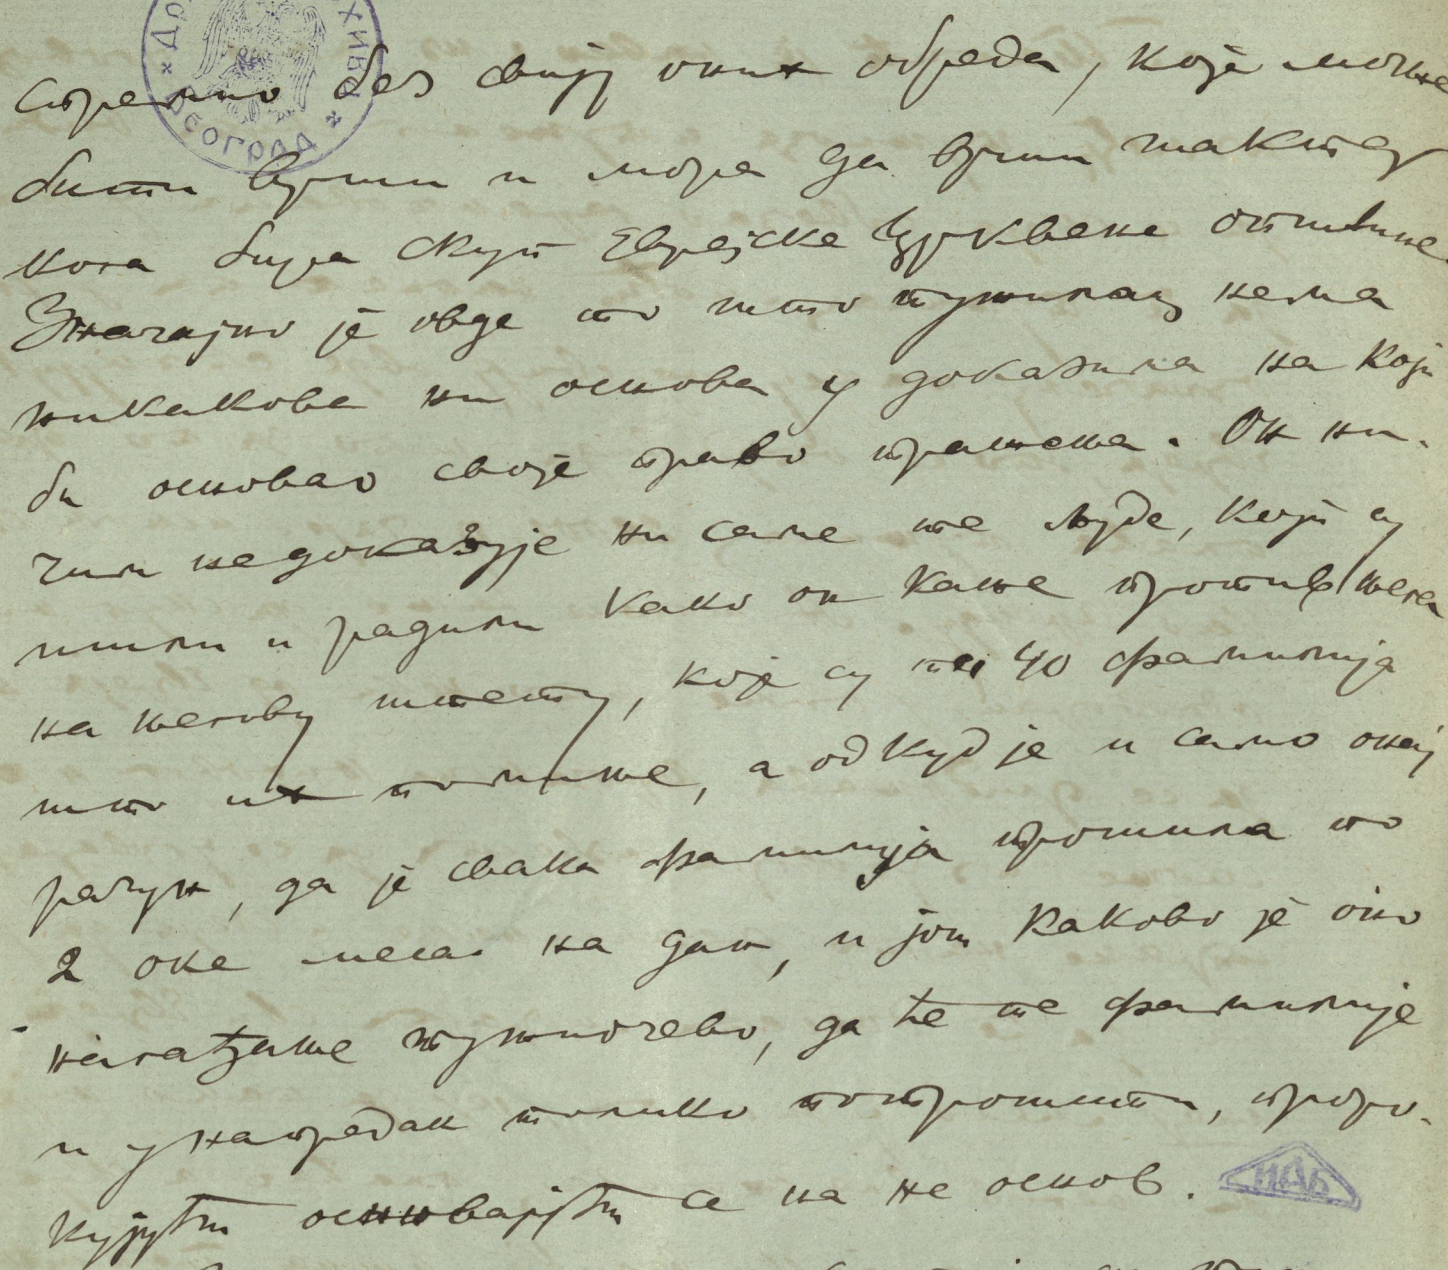 спремно без свију оних обреда, које може
бити врши и мора да врши шактер
кога бира скуп Еврејске Црквене општине.
Значајно је овде то што тужилац нема
никакове ни основа у доказима на који
би основао своје право тражења. Он ни-
чим недоказује ни саме те људе, који су
ишли и радили како он каже против њега
на његову штету, које су те 40 фамилија
што их помиње, а од куд је и само онај
рачун, да је свака фамилија трошила по
2 оке меса на дан, и још каково је оно
нагађање тужиочево, да ће те фамилије
и у напредак толико потрошити, проро-
кујући оснивајући се на не основ.
БЕОГРАД
ИАБ